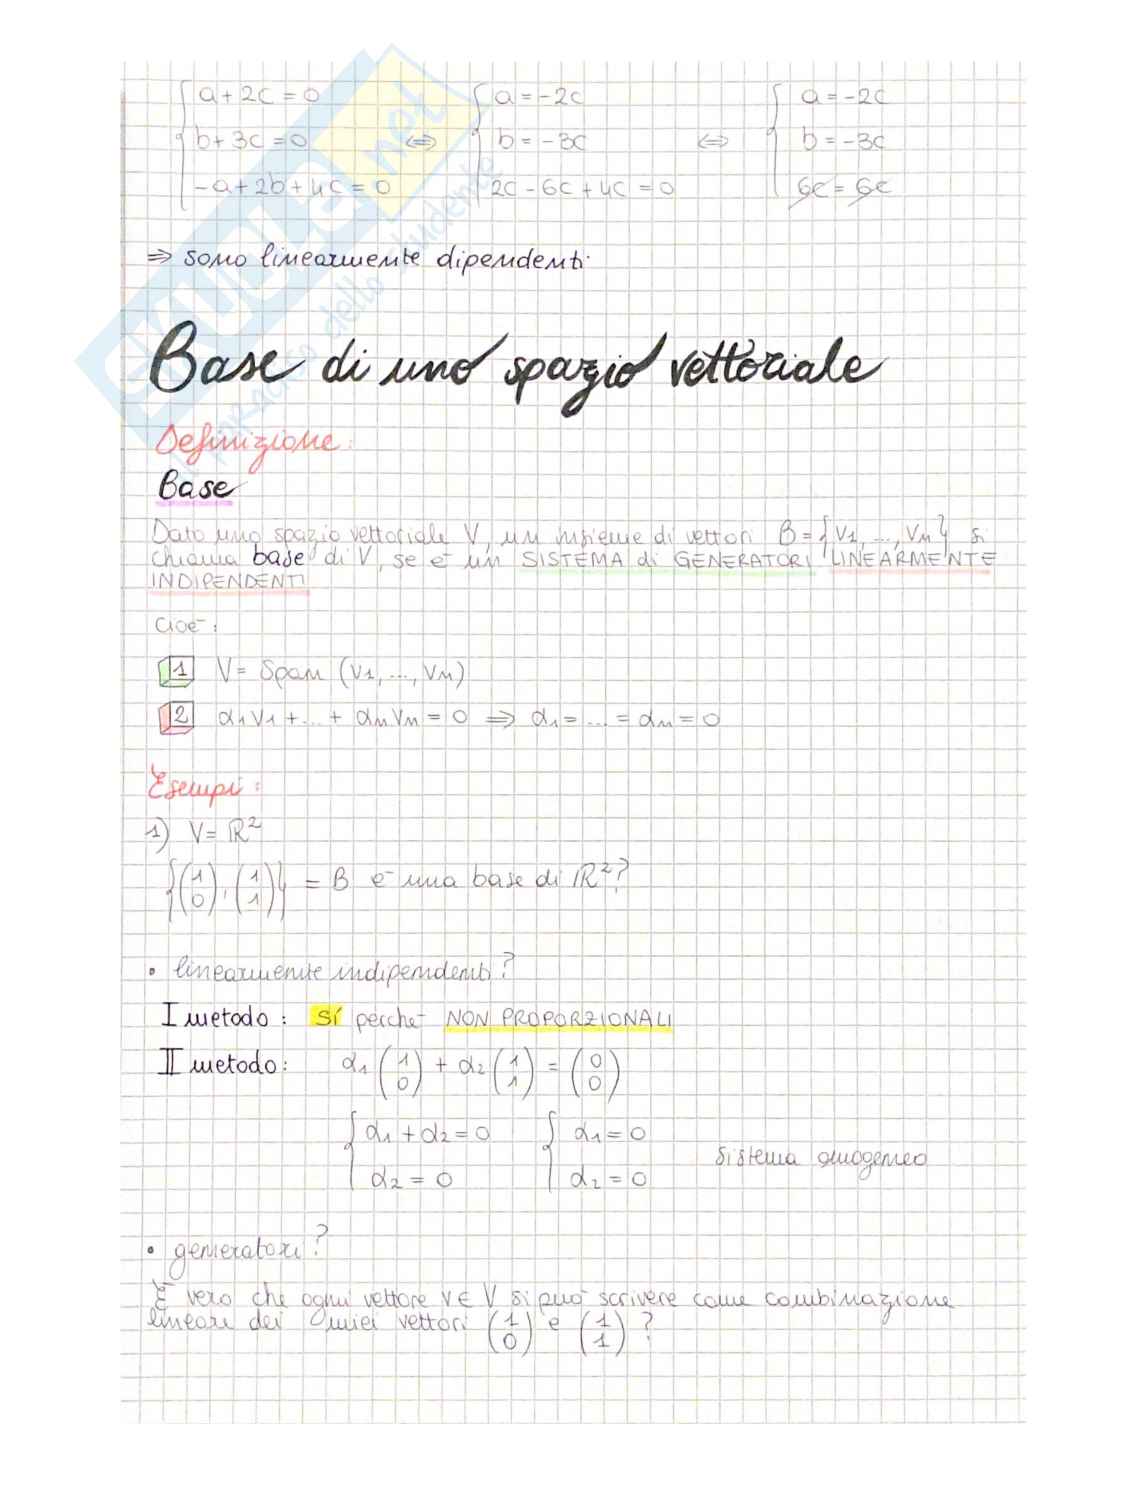 a + 2c = 0 a = -2c a = -2c
b + 3c = 0 ⇔ b = -3c ⇔ b = -3c
-a + 2b + 4c = 0 2c - 6c + 4c = 0 6c = 6c
⇒ sono linearmente dipendenti
Base di uno spazio vettoriale
Definizione:
Base
Dato uno spazio vettoriale V, un insieme di vettori B = {v1, ..., vn} si
chiama base di V, se è un SISTEMA di GENERATORI LINEARMENTE
INDIPENDENTI
cioè:
1 V = Span (v1, ..., vn)
2 α1v1 + ... + αnvn = 0 ⇒ α1 = ... = αn = 0
Esempi:
1) V = ℝ²
{(1 0), (1 1)} = B è una base di ℝ²?
• linearmente indipendenti?
I metodo: Sí perché NON PROPORZIONALI
II metodo: α1 (1 0) + α2 (1 1) = (0 0)
α1 + α2 = 0 α1 = 0
sistema omogeneo
α2 = 0 α2 = 0
• generatori?
È vero che ogni vettore v ∈ V si può scrivere come combinazione
lineare dei miei vettori (1 0) e (1 1) ?
skuola.net
il paradiso dello studente